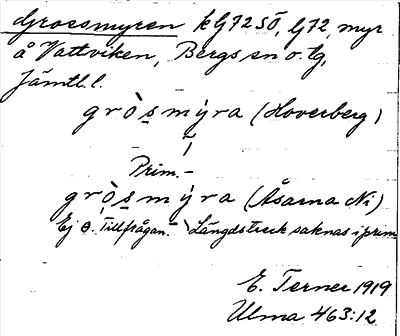 Grossmyren kG72SO, G72, myr
å Vattviken, Bergs sn o. tg,
Jämtl. l.
gròsmýra (Hoverberg)
Prim.-
gròsmýra (Åsarna Ni)
Ej o. Tillfrågan. - Längdstreck saknas i prim
E. Terner 1919
Ulma 463:12